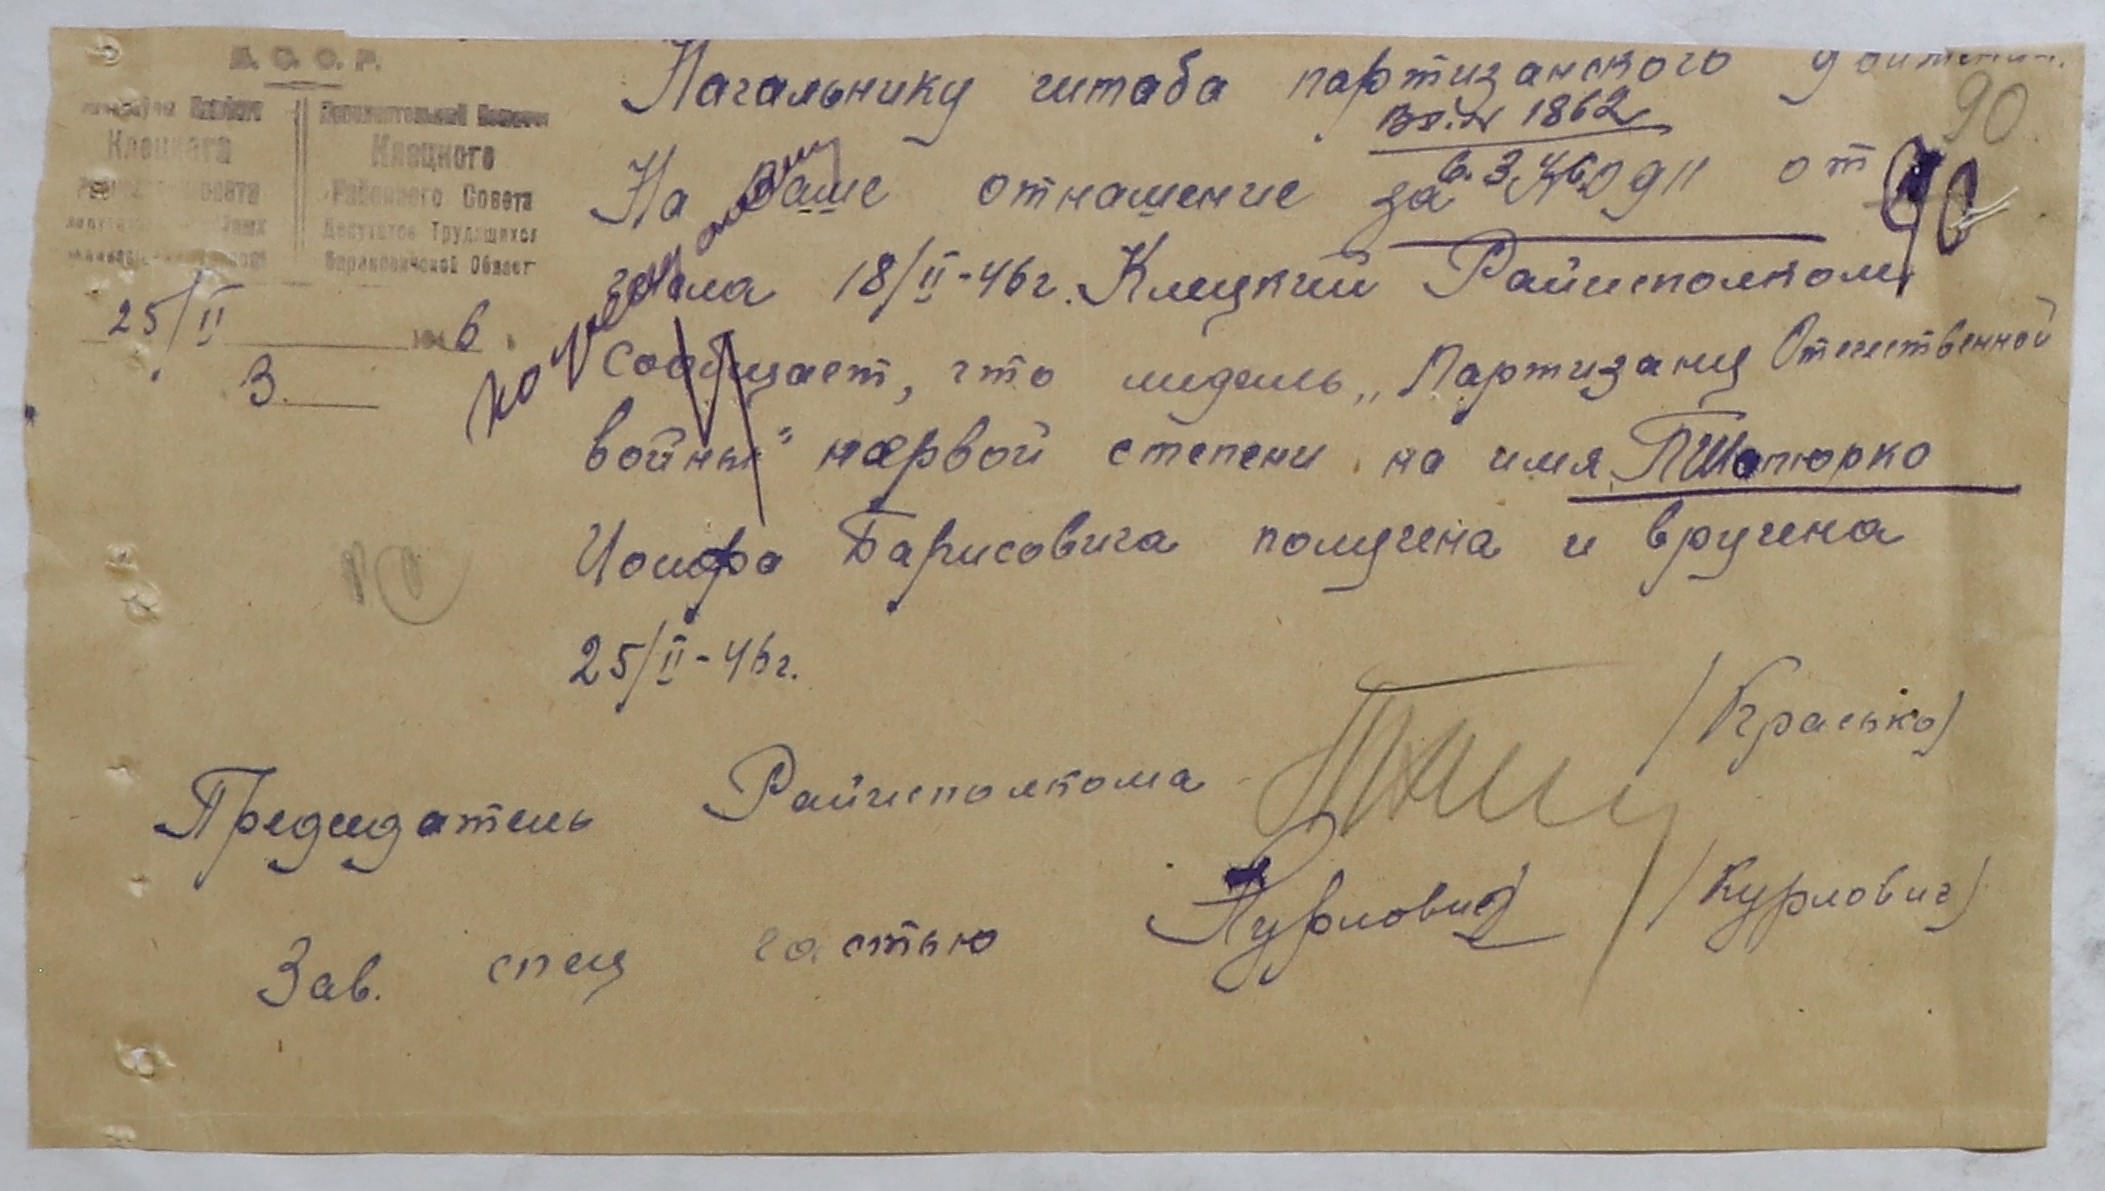 Б. С. С. Р.
Клецкага
Исполнительный Комитет
Клецкого
Районного Совета
Депутатов Трудящихся
Барановичской Област
25/II 1946
3.
Начальнику штаба партизанского движения
Вх. № 1862
6. 3. 46
90
90
На Ваше отнашение за № 0911 от
числа 18/II-46г. Клецкий Райисполком
сообщает, что медаль „Партизану Отечественной
войны" первой степени на имя Пшапюрко
Иосифа Барисовича получена и вручена
25/II-46г.
Председатель Райисполкома /Красько/
Зав. спец частью Курлович /Курлович/